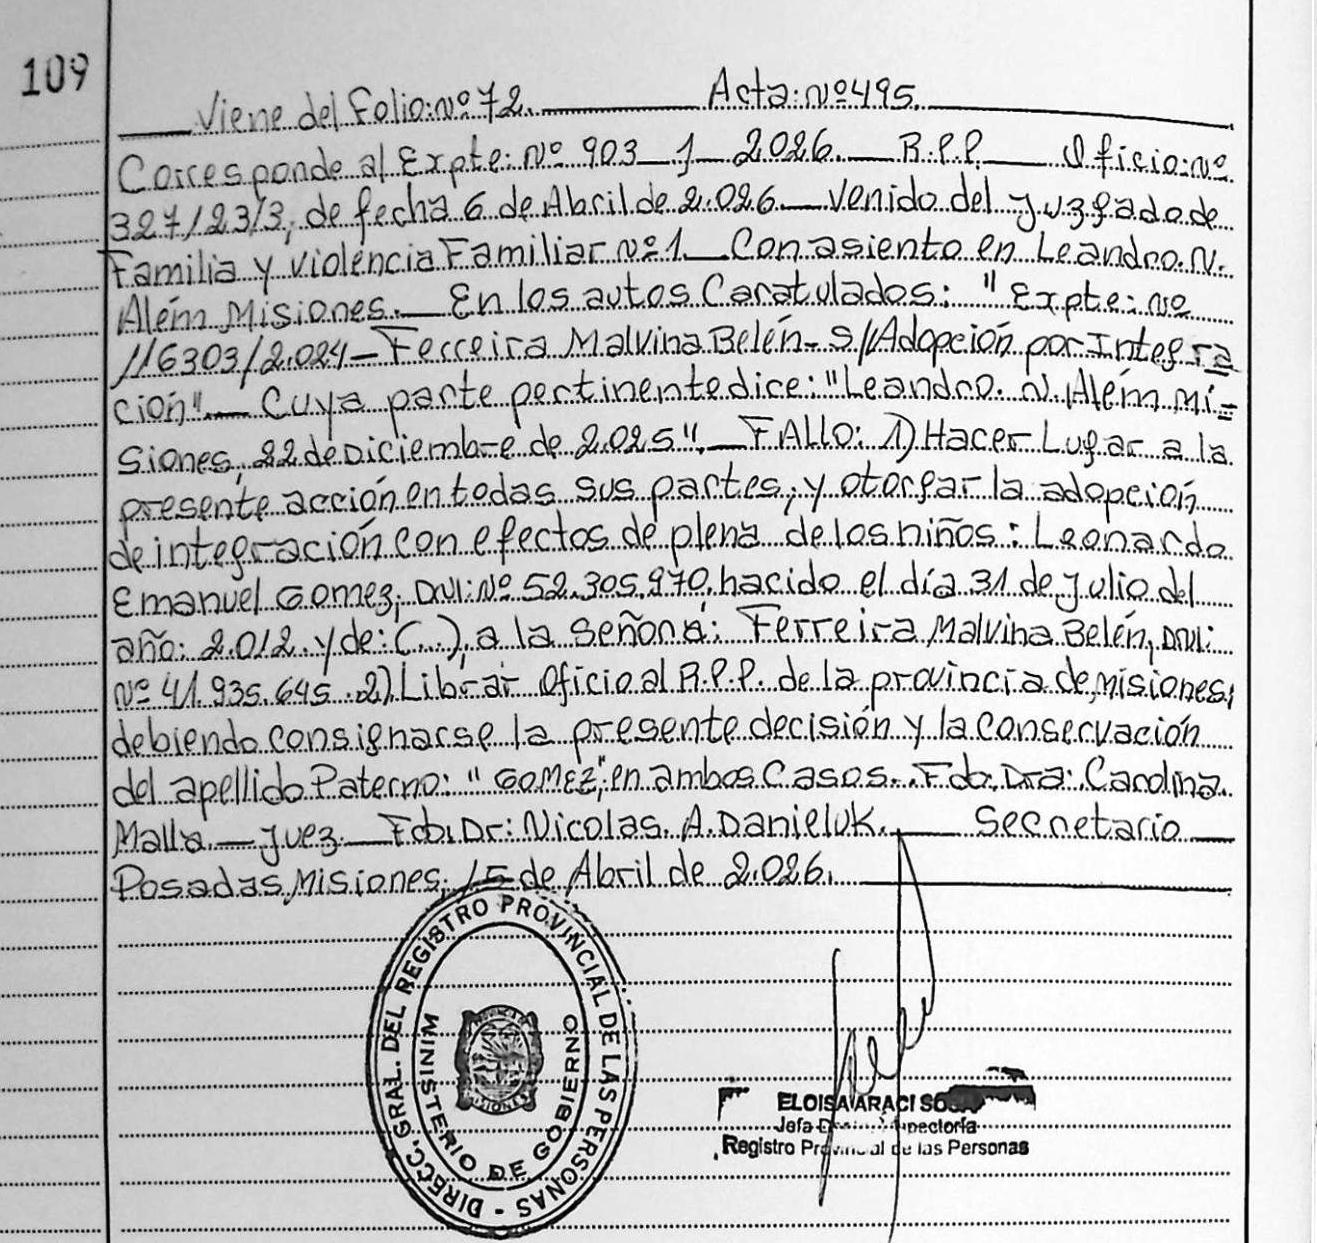 109
Viene del Folio: Nº 72. Acta: Nº 495.
Corresponde al Expte: Nº 903 J 2.026. R.P.P. Oficio: Nº
327/23/3, de fecha 6 de Abril de 2.026 venido del Juzgado de
Familia y Violencia Familiar Nº 1. Con asiento en Leandro. N.
Além Misiones. En los autos Caratulados: "Expte: Nº
116303/2.024 – Ferreira Malvina Belén – S//Adopción por Integra
ción". Cuya parte pertinente dice: "Leandro. N. Além Mi=
siones, 22 de Diciembre de 2.025". FAllo: 1) Hacer Lugar a la
presente acción en todas sus partes, y otorgar la adopción
de integración con efectos de plena de los niños: Leonardo
Emanuel Gomez, DNI: Nº 52.305.970, nacido el día 31 de Julio del
año: 2.012. y de: (...), a la Señora: Ferreira Malvina Belén, DNI:
Nº 41.935.645. 2) Librar Oficio al R.P.P. de la provincia de Misiones,
debiendo consignarse la presente decisión y la conservación
del apellido Paterno: "GOMEZ", en ambos Casos. Fdo. Dra: Carolina
Malla. Juez. Fdo. Dr: Nicolas. A. Danieluk. Secretario
Posadas Misiones, 15 de Abril de 2.026.
DIRECC. GRAL. DEL REGISTRO PROVINCIAL DE LAS PERSONAS -
MINISTERIO DE GOBIERNO
MISIONES
ELOISA ARACI SOSA
Jefa Inspectoría
Registro Provincial de las Personas